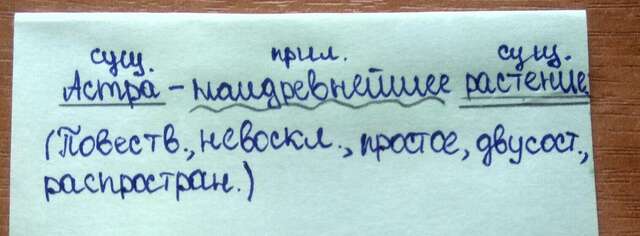 сущ. прил. сущ.
Астра - наидревнейшее растение
(Повеств., невоскл., простое, двусост.,
распростран.)